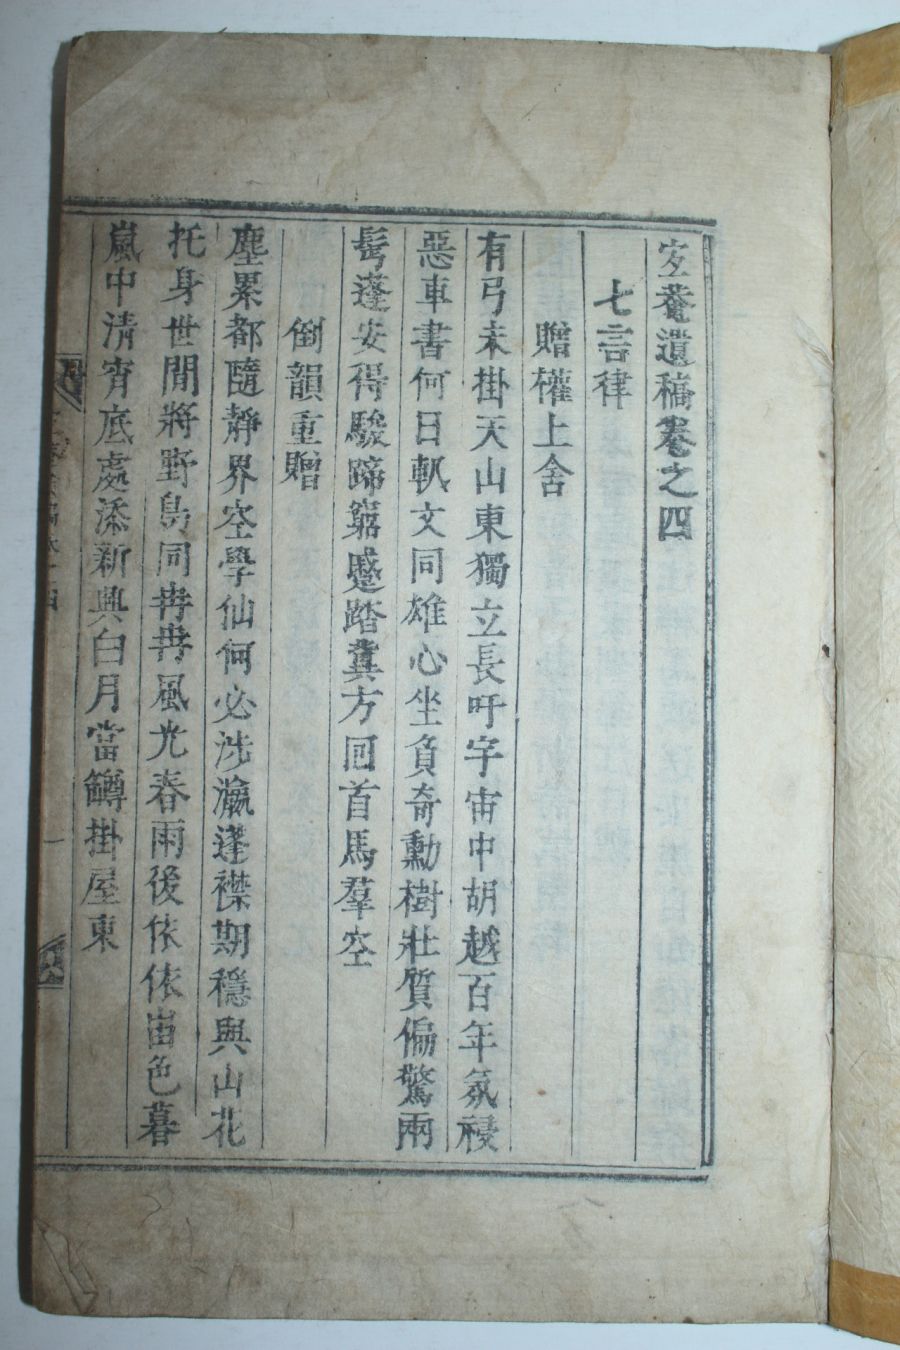 安菴遺稿卷之四
七言律
贈權上舍
有弓未掛天山東獨立長吁宇宙中胡越百年氛祲
惡車書何日軌文同雄心坐負奇勳樹壯質偏驚兩
鬂蓬安得駿蹄窮蹙踏冀方回首馬羣空
倒韻重贈
塵累都隨靜界空學仙何必涉瀛蓬襟期穩與山花
托身世閒將野鳥同冉冉風光春雨後依依峀色暮
嵐中清宵底處添新興白月當罇掛屋東